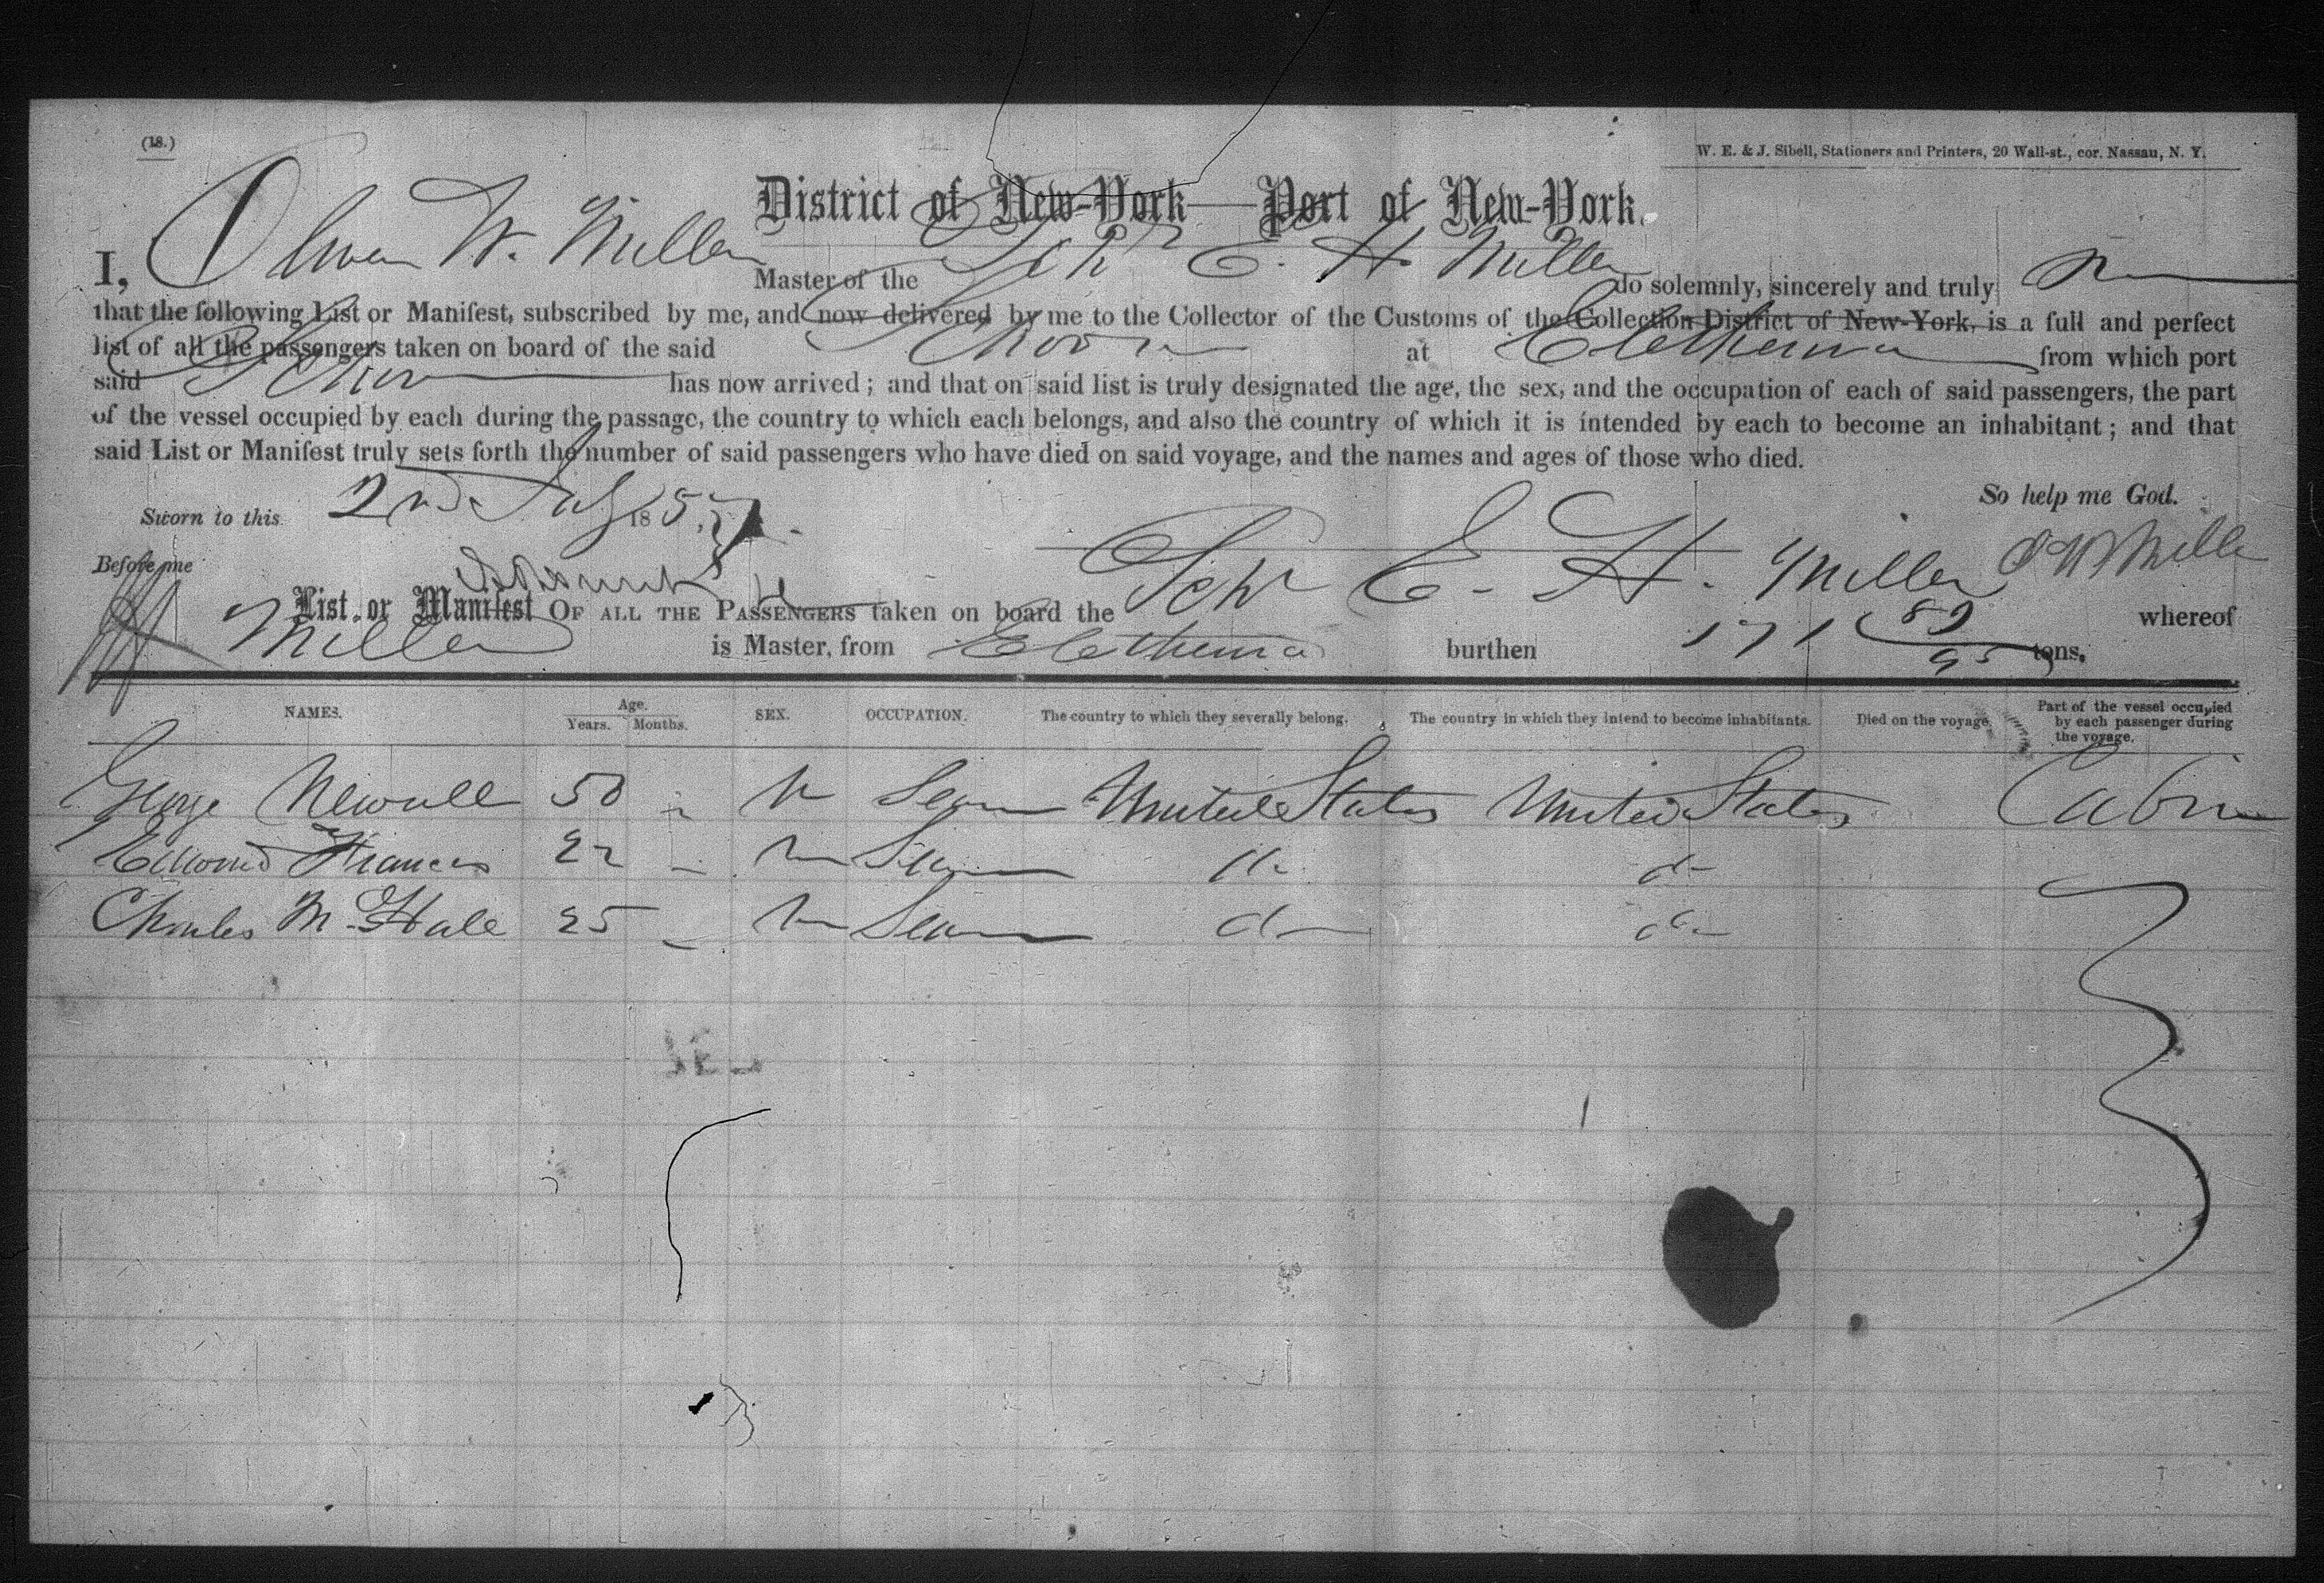 (18.)
W. E. & J. Sibell, Stationers and Printers, 20 Wall-st., cor. Nassau, N. Y.
District of New-York—Port of New-York.
I, Oliver W. Miller Master of the Schr E. H. Miller do solemnly, sincerely and truly
that the following List or Manifest, subscribed by me, and now delivered by me to the Collector of the Customs of the Collection District of New-York, is a full and perfect
list of all the passengers taken on board of the said Schoor at Eletheria from which port
said Schoor has now arrived; and that on said list is truly designated the age, the sex, and the occupation of each of said passengers, the part
of the vessel occupied by each during the passage, the country to which each belongs, and also the country of which it is intended by each to become an inhabitant; and that
said List or Manifest truly sets forth the number of said passengers who have died on said voyage, and the names and ages of those who died.
So help me God.
Sworn to this 2nd July 185
O W Miller
Before me
List or Manifest OF ALL THE PASSENGERS taken on board the Schr E. H. Miller whereof
Miller is Master, from Eletheria burthen 171 89/95 tons.
NAMES. Age. Years. Months. SEX. OCCUPATION. The country to which they severally belong. The country in which they intend to become inhabitants. Died on the voyage. Part of the vessel occupied by each passenger during the voyage.
George Newall 50 - M Seam United States United States Cabin
Edward Francis 22 - M Seam do do
Charles M. Hale 25 - M Seam do do